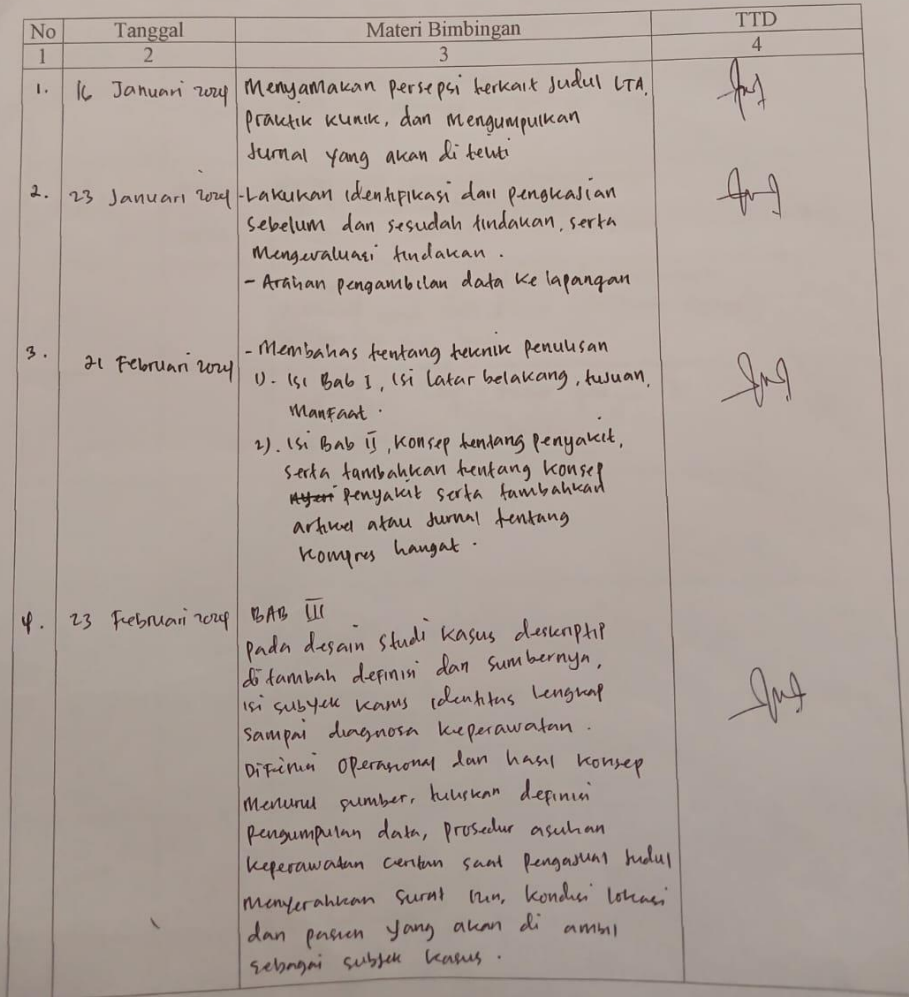 No Tanggal Materi Bimbingan TTD
1 2 3 4
1. 16 Januari 2024 Menyamakan persepsi terkait Judul LTA,
praktik klinik, dan mengumpulkan
Jurnal yang akan di teliti
2. 23 Januari 2024 - Lakukan identifikasi dari pengkajian
sebelum dan sesudah tindakan, serta
mengevaluasi tindakan.
- Arahan pengambilan data ke lapangan
3. 21 Februari 2024 - Membahas tentang teknik penulisan
1). Isi Bab I, isi latar belakang, tujuan,
Manfaat.
2). Isi Bab II, konsep tentang penyakit,
serta tambahkan tentang konsep
penyakit serta tambahkan
artikel atau Jurnal tentang
kompres hangat.
4. 23 Februari 2024 BAB III
pada desain studi kasus deskriptip
di tambah definisi dan sumbernya,
isi subyek kasus identitas lengkap
sampai diagnosa keperawatan.
Difinisi operasional dan hasil konsep
menurut sumber, tuliskan definisi
pengumpulan data, prosedur asuhan
keperawatan ceritan saat pengajuat Judul
menyerahkan surat izin, kondisi lokasi
dan pasien yang akan di ambil
sebagai subjek kasus.